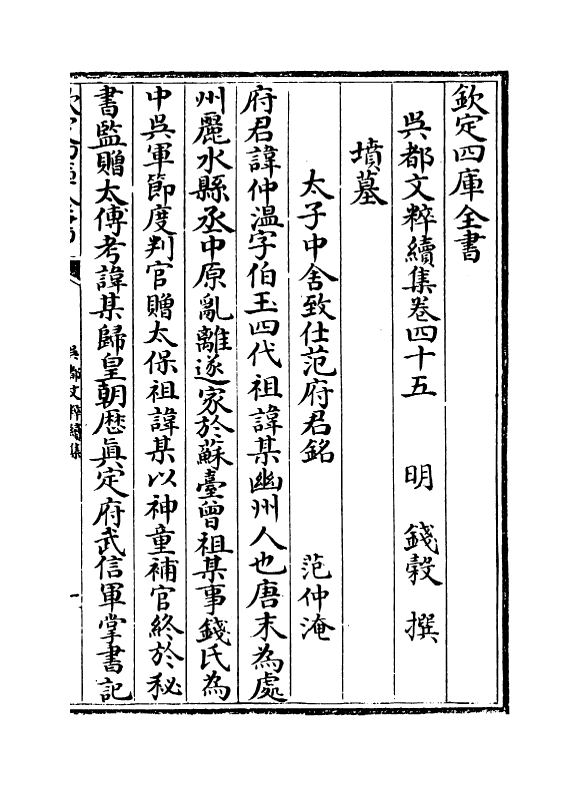 欽定四庫全書
吳都文粹續集卷四十五　明　錢榖　撰
墳墓
太子中舍致仕范府君銘　范仲淹
府君諱仲溫字伯玉四代祖諱某幽州人也唐末為處
州麗水縣丞中原亂離遂家於蘇臺曾祖某事錢氏為
中吳軍節度判官贈太保祖諱某以神童補官終於秘
書監贈太傅考諱某歸皇朝歴真定府武信軍掌書記
吳都文粹續集
一